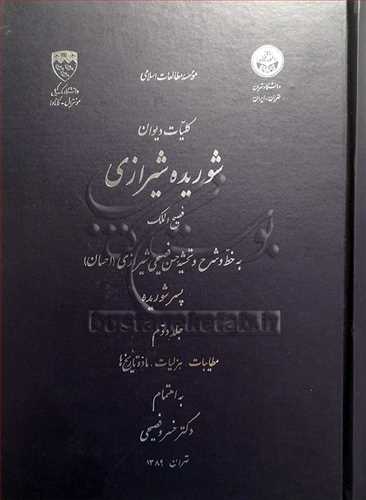 مؤسسه مطالعات اسلامی
دانشگاه تهران
تهران - ایران
دانشگاه مک گیل
مونترال - کانادا
کلیّات دیوان
شوریده شیرازی
فصیح الملک
به خطّ و شرح و تحشیهٔ حسن فصیحی شیرازی (احسان)
پسر شوریده
جلد دوّم
مطایبات، هزلیات، مادّه تاریخ‌ها
به اهتمام
دکتر خسرو فصیحی
تهران ۱۳۸۹
bustaneketab.ir